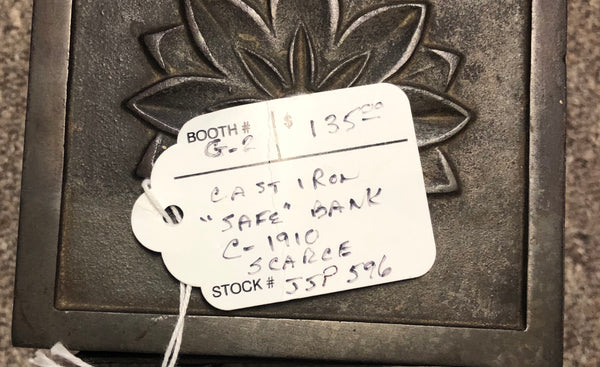 BOOTH # G-2 $ 135.00
CAST IRON
"SAFE" BANK
C-1910
SCARCE
STOCK # JSP 596